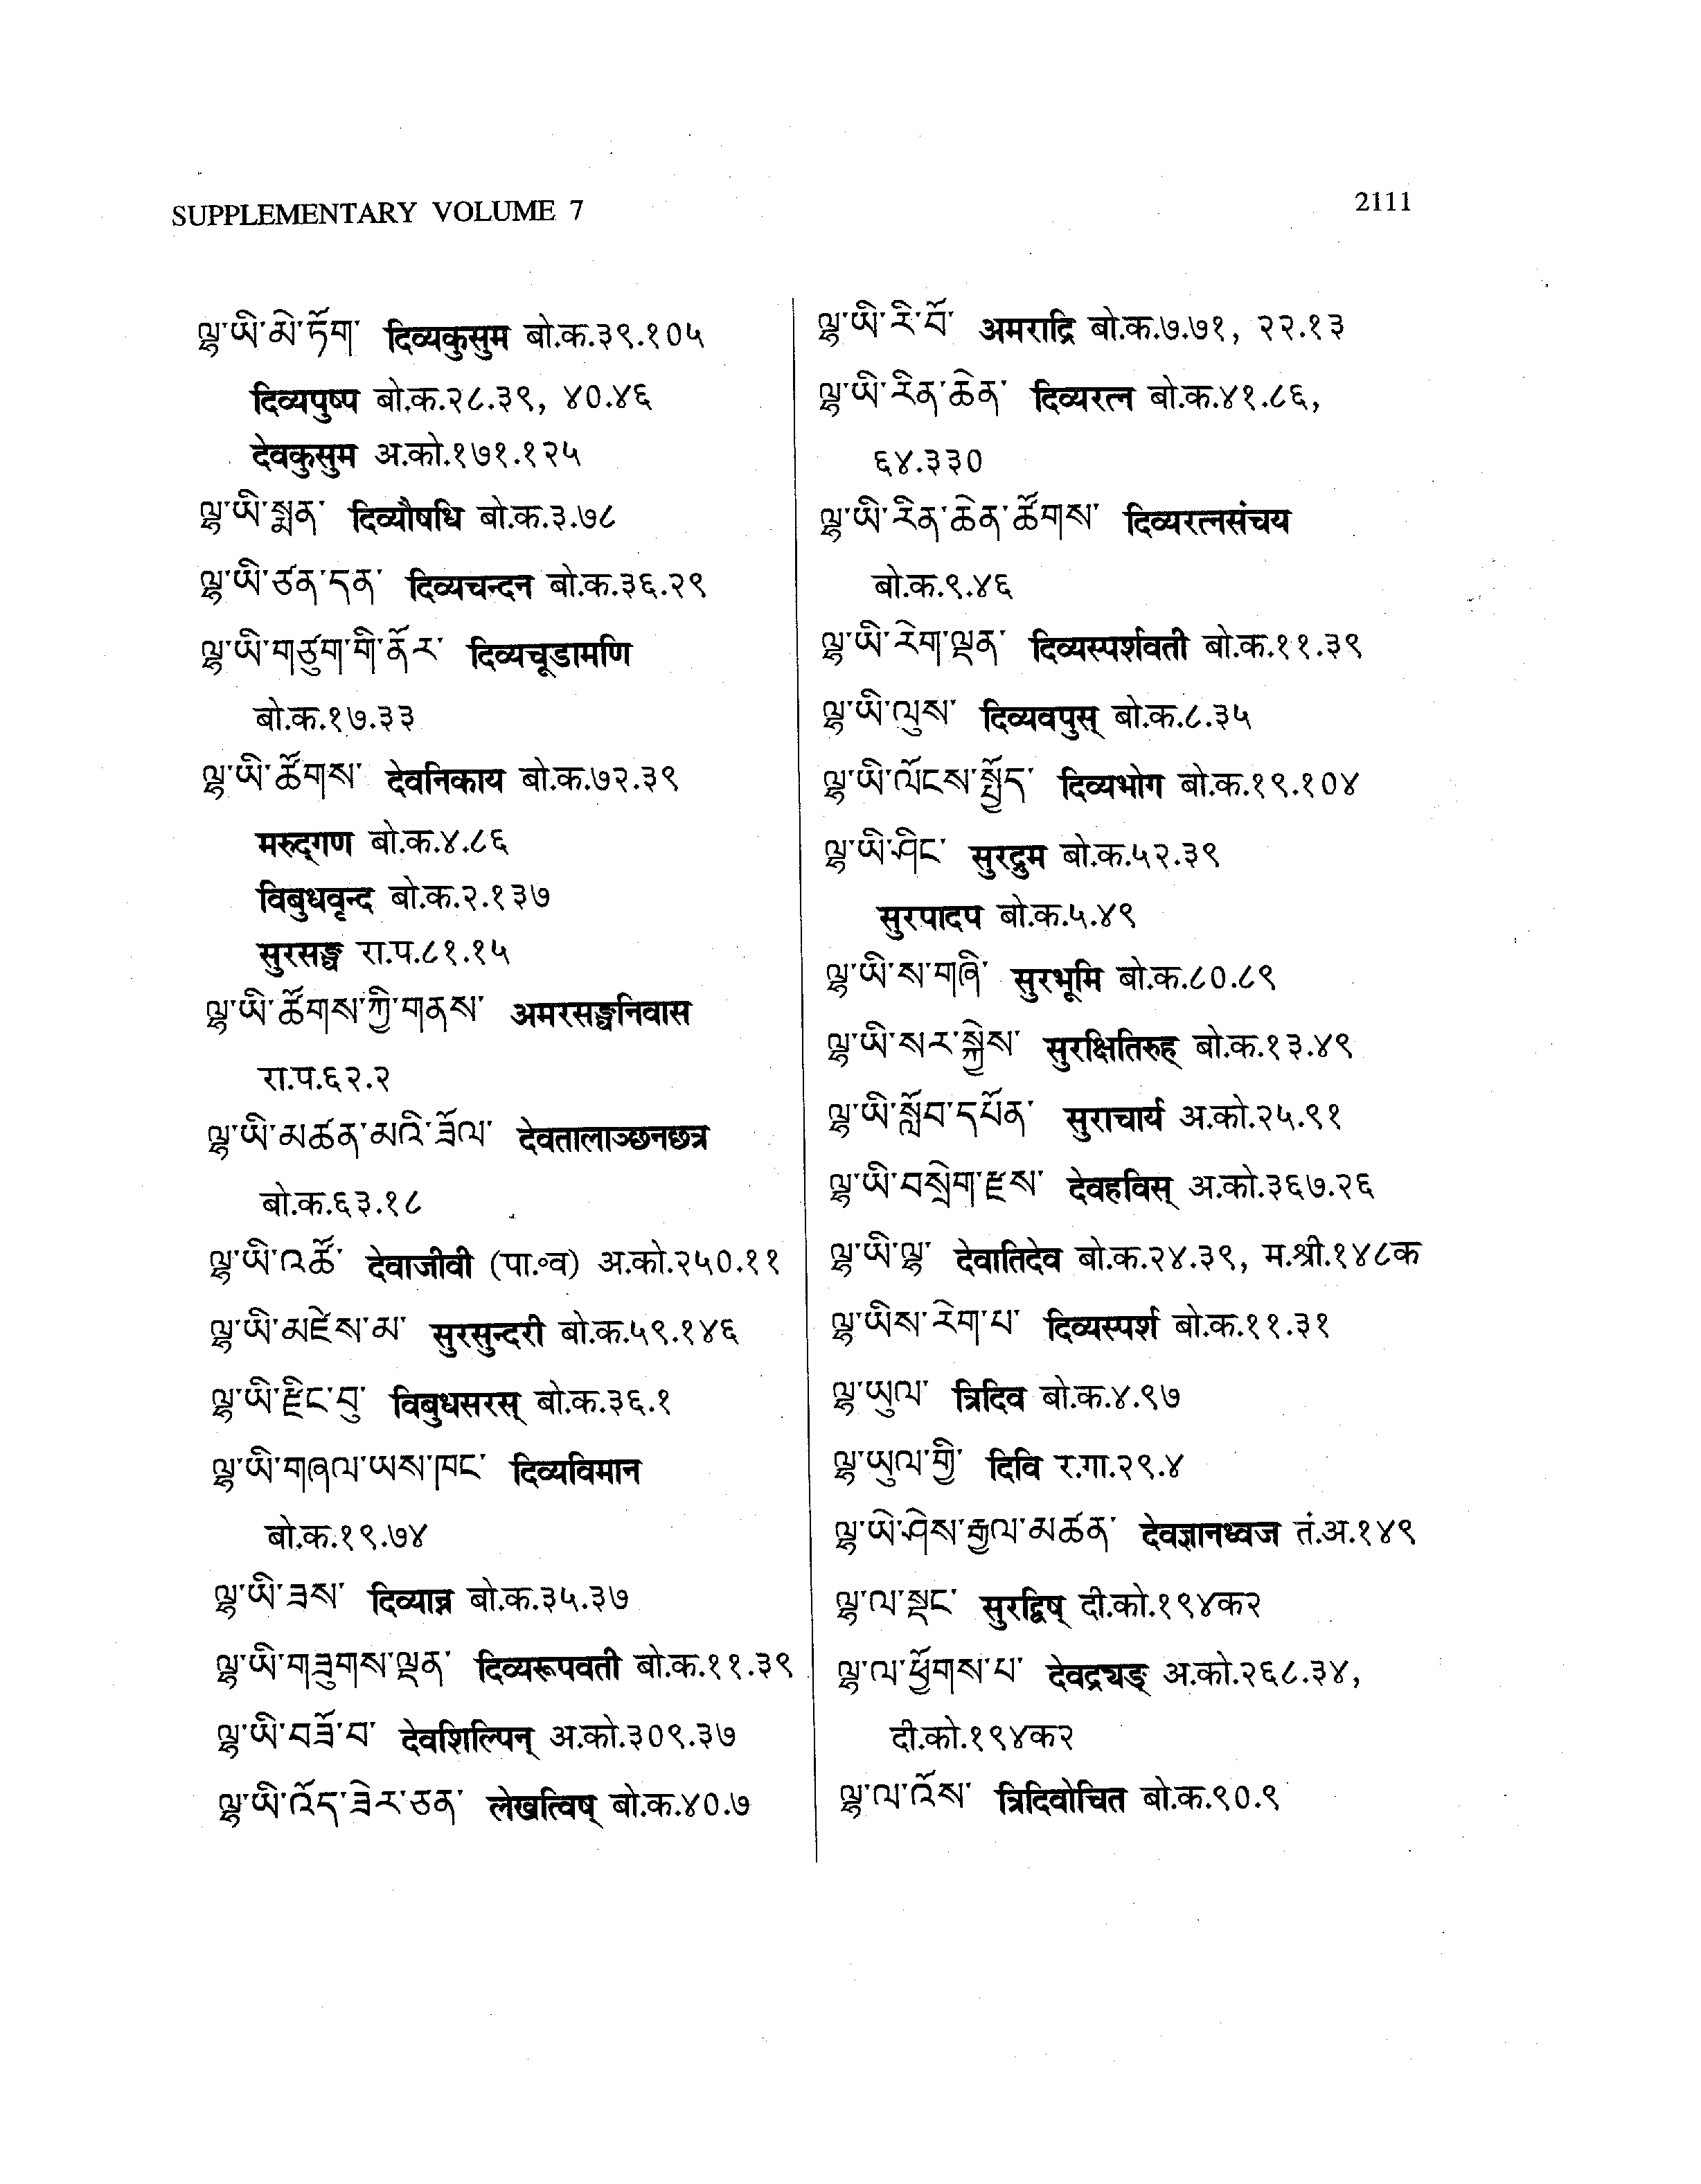 SUPPLEMENTARY VOLUME 7
2111
ལྷ་ཡི་མེ་ཏོག་ दिव्यकुसुम बो.क.३९.१०५
दिव्यपुष्प बो.क.२८.३९, ४०.४६
देवकुसुम अ.को.१७१.१२५
ལྷ་ཡི་སྨན་ दिव्यौषधि बो.क.३.७८
ལྷ་ཡི་ཙན་དན་ दिव्यचन्दन बो.क.३६.२९
ལྷ་ཡི་གཙུག་གི་ནོར་ दिव्यचूडामणि
बो.क.१७.३३
ལྷ་ཡི་ཚོགས་ देवनिकाय बो.क.७२.३९
मरुद्गण बो.क.४.८६
विबुधवृन्द बो.क.२.१३७
सुरसङ्घ रा.प.८१.१५
ལྷ་ཡི་ཚོགས་ཀྱི་གནས་ अमरसङ्घनिवास
रा.प.६२.२
ལྷ་ཡི་མཚན་མའི་ཟོལ་ देवतालाञ्छनछत्र
बो.क.६३.१८
ལྷ་ཡི་འཚོ་ देवाजीवी (पा.॰व) अ.को.२५०.११
ལྷ་ཡི་མཛེས་མ་ सुरसुन्दरी बो.क.५९.१४६
ལྷ་ཡི་རྫིང་བུ་ विबुधसरस् बो.क.३६.१
ལྷ་ཡི་གཞལ་ཡས་ཁང་ दिव्यविमान
बो.क.१९.७४
ལྷ་ཡི་ཟས་ दिव्यान्न बो.क.३५.३७
ལྷ་ཡི་གཟུགས་ལྡན་ दिव्यरूपवती बो.क.११.३९
ལྷ་ཡི་བཟོ་བ་ देवशिल्पिन् अ.को.३०९.३७
ལྷ་ཡི་འོད་ཟེར་ཅན་ लेखत्विष् बो.क.४०.७
ལྷ་ཡི་རི་བོ་ अमराद्रि बो.क.७.७१, २२.१३
ལྷ་ཡི་རིན་ཆེན་ दिव्यरत्न बो.क.४१.८६,
६४.३३०
ལྷ་ཡི་རིན་ཆེན་ཚོགས་ दिव्यरत्नसंचय
बो.क.९.४६
ལྷ་ཡི་རེག་ལྡན་ दिव्यस्पर्शवती बो.क.११.३९
ལྷ་ཡི་ལུས་ दिव्यवपुस् बो.क.८.३५
ལྷ་ཡི་ལོངས་སྤྱོད་ दिव्यभोग बो.क.१९.१०४
ལྷ་ཡི་ཤིང་ सुरद्रुम बो.क.५२.३९
सुरपादप बो.क.५.४९
ལྷ་ཡི་ས་གཞི་ सुरभूमि बो.क.८०.८९
ལྷ་ཡི་སར་སྐྱེས་ सुरक्षितिरुह् बो.क.१३.४९
ལྷ་ཡི་སློབ་དཔོན་ सुराचार्य अ.को.२५.९१
ལྷ་ཡི་བསྲེག་རྫས་ देवहविस् अ.को.३६७.२६
ལྷ་ཡི་ལྷ་ देवातिदेव बो.क.२४.३९, म.श्री.१४८क
ལྷ་ཡིས་རེག་པ་ दिव्यस्पर्श बो.क.११.३१
ལྷ་ཡུལ་ त्रिदिव बो.क.४.९७
ལྷ་ཡུལ་གྱི་ दिवि र.गा.२९.४
ལྷ་ཡེ་ཤེས་རྒྱལ་མཚན་ देवज्ञानध्वज तं.अ.१४९
ལྷ་ལ་སྡང་ सुरद्विष् दी.को.१९४क२
ལྷ་ལ་ཕྱོགས་པ་ देवद्र्यङ् अ.को.२६८.३४,
दी.को.१९४क२
ལྷ་ལ་འོས་ त्रिदिवोचित बो.क.९०.९